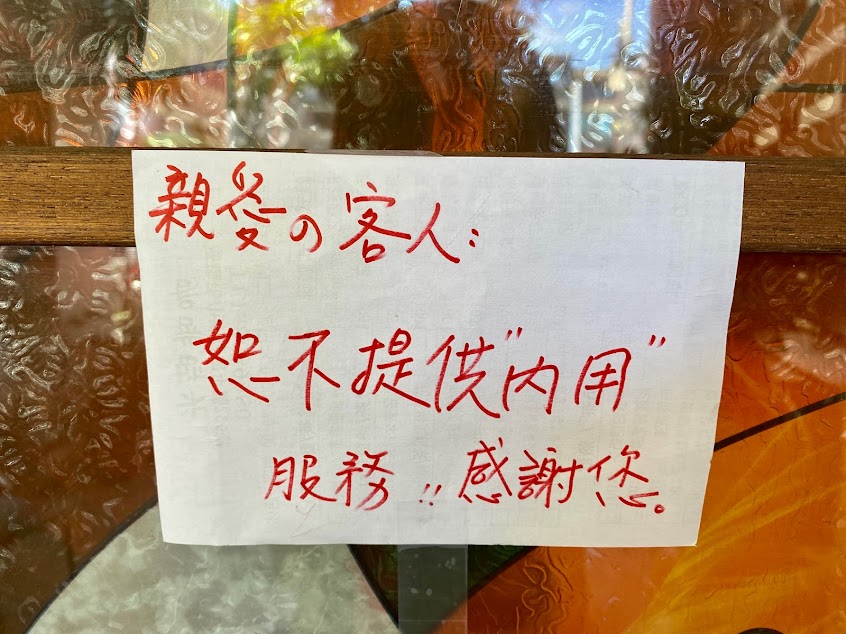 親愛の客人:
恕不提供"內用"
服務!!感謝您。